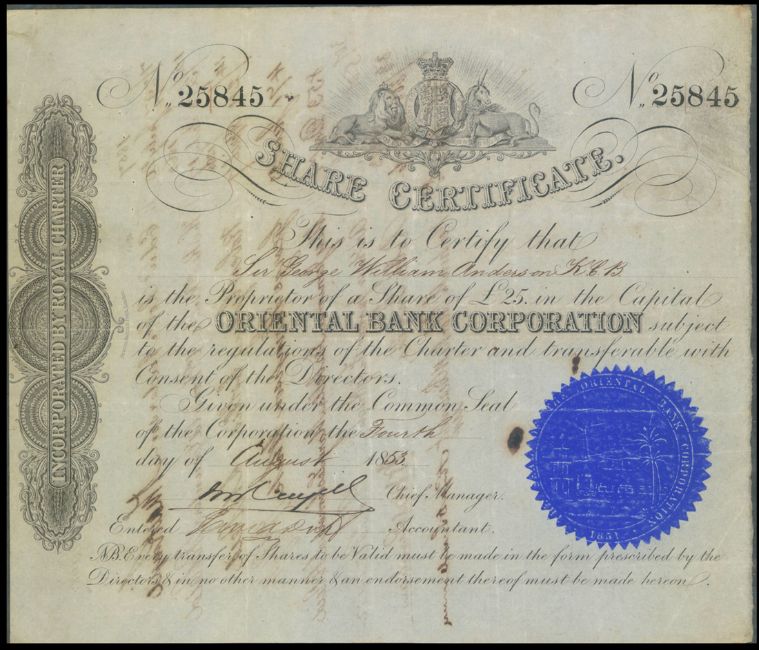 No. 25845
No. 25845
SHARE CERTIFICATE.
INCORPORATED BY ROYAL CHARTER
This is to Certify that
Sir George William Anderson K C B
is the Proprietor of a Share of £25. in the Capital
of the ORIENTAL BANK CORPORATION subject
to the regulations of the Charter and transferable with
Consent of the Directors.
Given under the Common Seal
of the Corporation the Fourth
day of August 1853
Chief Manager.
Entered Accountant.
THE ORIENTAL BANK CORPORATION
1851
N.B. Every transfer of Shares to be Valid must be made in the form prescribed by the
Directors & in no other manner & an endorsement thereof must be made hereon.